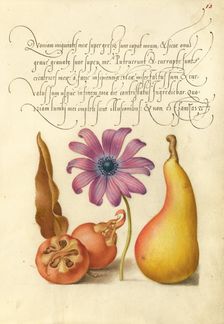 13
Quoniam iniquitates mee supergresse sunt caput meum, & sicut onus
graue grauate sunt super me. Putruerunt & corrupte sunt
cicatrices mee: a facie insipientie mee. Miser factus sum & cur
uatus sum usque in finem tota die contristatus ingrediebar. Quo
niam lumbi mei impleti sunt illusionibus, & non est sanitas